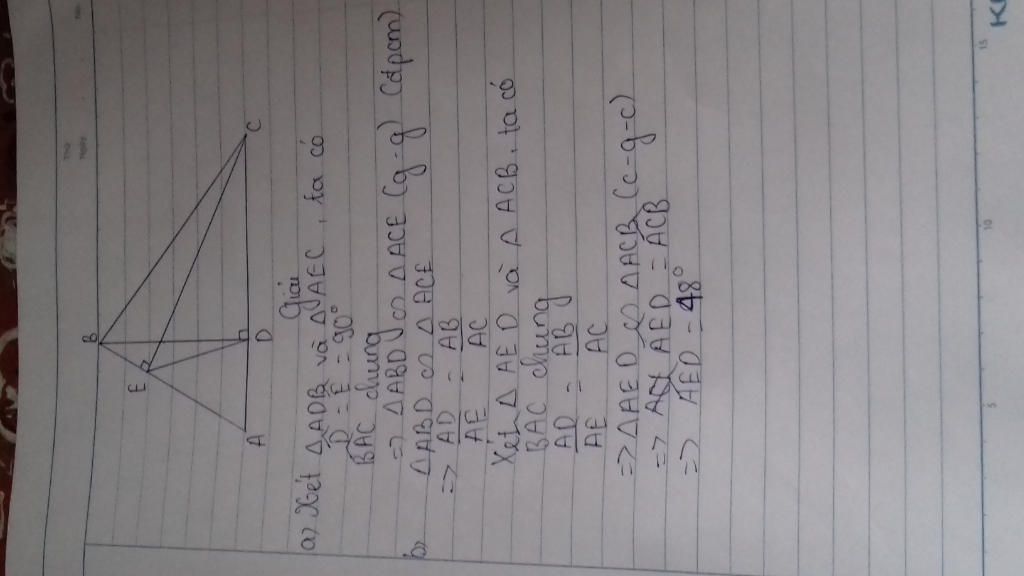 B
E
A
D
C
Giải
a) Xét ΔADB và ΔAEC, ta có
D̂ = Ê = 90°
BAC chung
=> ΔABD ∽ ΔACE (g-g) (đpcm)
b) ΔABD ∽ ΔACE
=> AD/AE = AB/AC
Xét Δ AED và Δ ACB, ta có
BAC chung
AD/AE = AB/AC
=> ΔAED ∽ ΔACB (c-g-c)
=> AED = ACB
=> AED = 48°
5
10
15